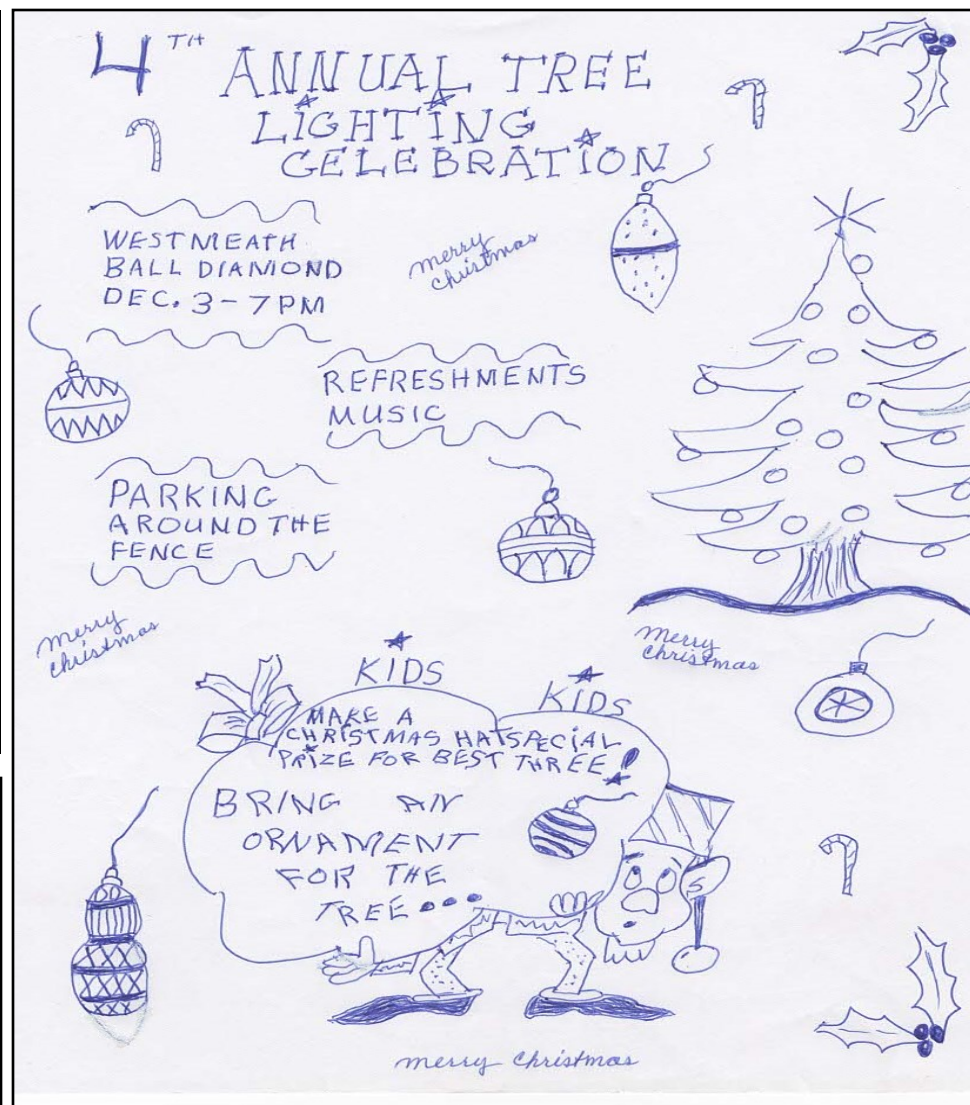 4TH ANNUAL TREE
LIGHTING
CELEBRATION
WESTMEATH
BALL DIAMOND
DEC. 3 - 7 PM
merry
christmas
REFRESHMENTS
MUSIC
PARKING
AROUND THE
FENCE
merry
christmas
merry
christmas
KIDS
KIDS
MAKE A
CHRISTMAS HAT SPECIAL
PRIZE FOR BEST THREE!
BRING AN
ORNAMENT
FOR THE
TREE...
merry christmas